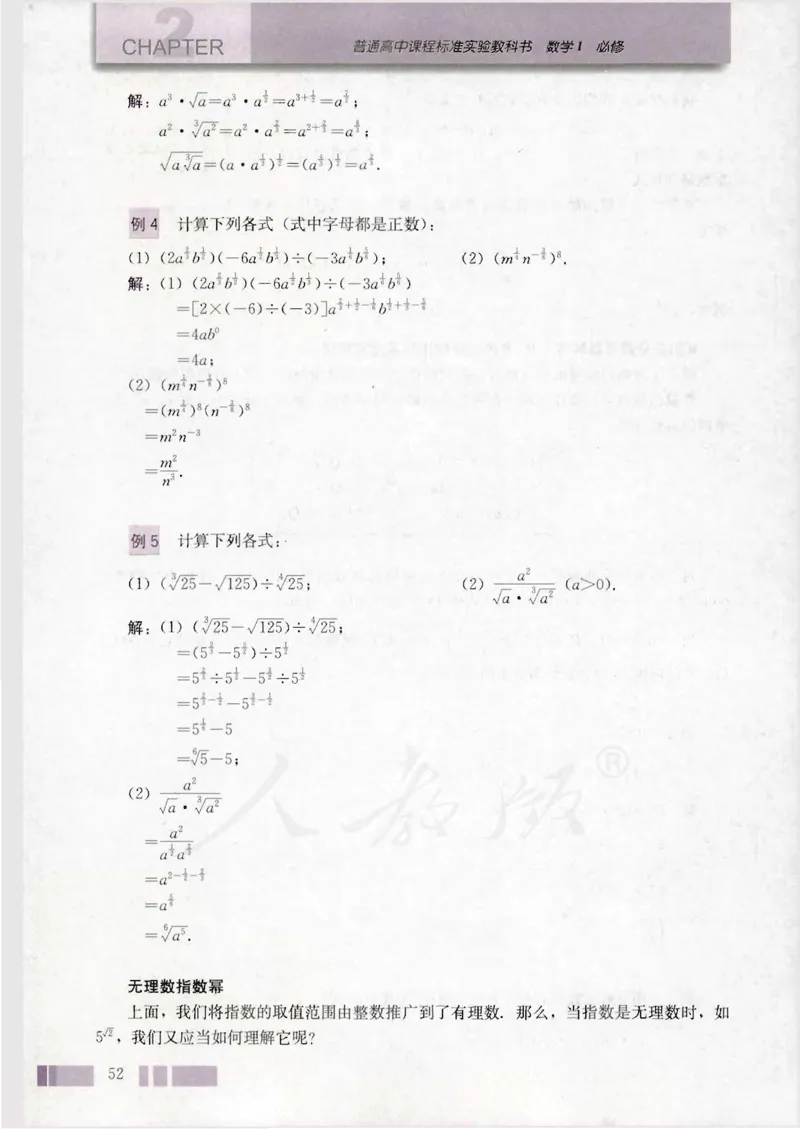 2
CHAPTER
普通高中课程标准实验教科书 数学1 必修
解：a³·√a=a³·a^{1/2}=a^{3+1/2}=a^{7/2}；
a²·∛a²=a²·a^{2/3}=a^{2+2/3}=a^{8/3}；
√(a∛a)=(a·a^{1/3})^{1/2}=(a^{4/3})^{1/2}=a^{2/3}.
例4 计算下列各式（式中字母都是正数）：
(1) (2a^{2/3}b^{1/2})(-6a^{1/2}b^{1/3})÷(-3a^{1/6}b^{5/6})； (2) (m^{1/4}n^{-3/8})⁸.
解：(1) (2a^{2/3}b^{1/2})(-6a^{1/2}b^{1/3})÷(-3a^{1/6}b^{5/6})
=[2×(-6)÷(-3)]a^{2/3+1/2-1/6}b^{1/2+1/3-5/6}
=4ab⁰
=4a；
(2) (m^{1/4}n^{-3/8})⁸
=(m^{1/4})⁸(n^{-3/8})⁸
=m²n⁻³
=m²/n³.
例5 计算下列各式：
(1) (∛25-√125)÷∜25； (2) a²/(√a·∛a²) (a>0).
解：(1) (∛25-√125)÷∜25；
=(5^{2/3}-5^{3/2})÷5^{1/2}
=5^{2/3}÷5^{1/2}-5^{3/2}÷5^{1/2}
=5^{2/3-1/2}-5^{3/2-1/2}
=5^{1/6}-5
=⁶√5-5；
(2) a²/(√a·∛a²)
=a²/(a^{1/2}a^{2/3})
=a^{2-1/2-2/3}
=a^{5/6}
=⁶√a⁵.
无理数指数幂
上面，我们将指数的取值范围由整数推广到了有理数．那么，当指数是无理数时，如
5^{√2}，我们又应当如何理解它呢？
52
人教版®